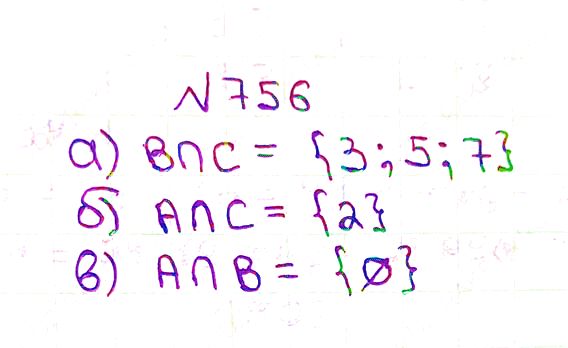 №756
а) B∩C = {3; 5; 7}
б) A∩C = {2}
в) A∩B = {∅}